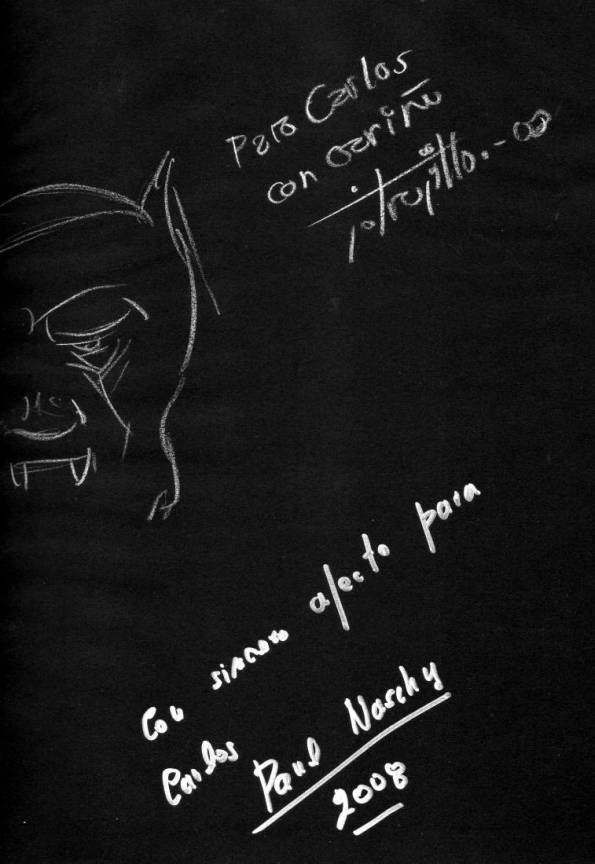 Para Carlos
con cariño
jtrujillo.-08
Con sincero afecto para
Carlos
Paul Naschy
2008